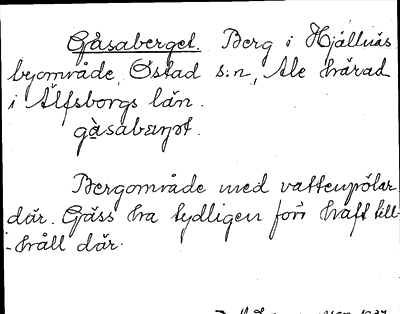 Gåsaberget. Berg i Hjällnäs
byområde, Östad s:n, Ale härad
i Älfsborgs län.
Bergområde med vattenpölar
där. Gäss ha tydligen förr haft till-
-håll där.